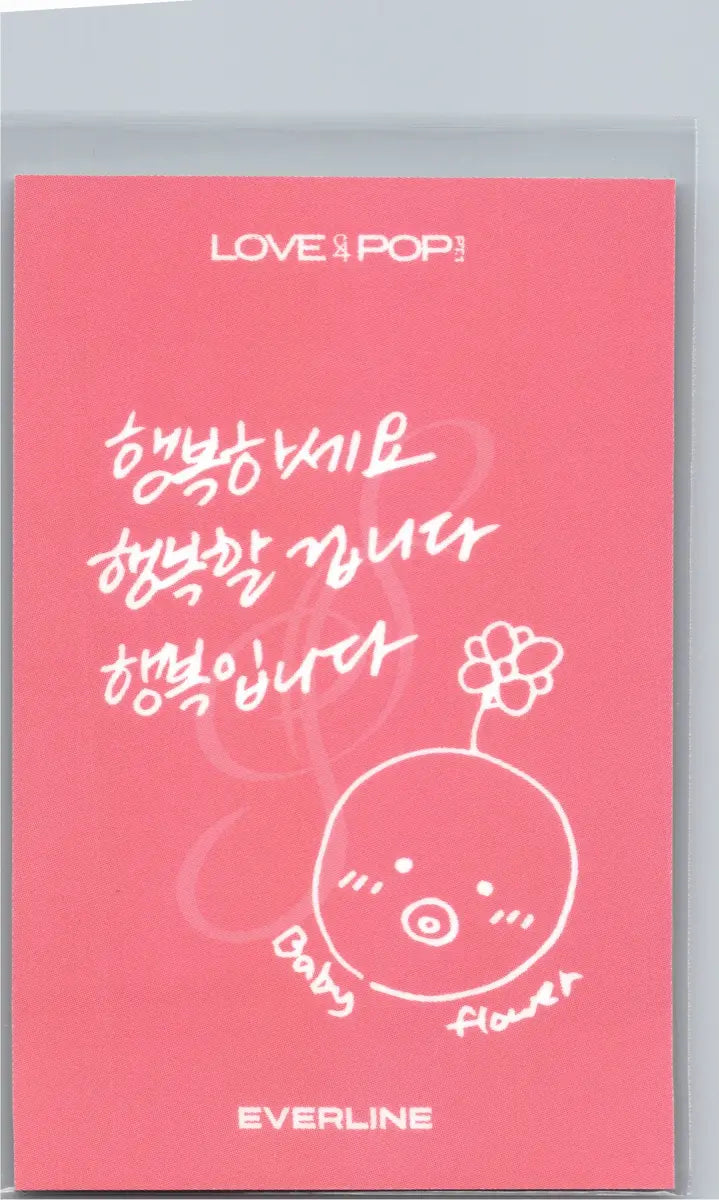 LOVE POP
행복하세요
행복할 겁니다
행복입니다
Baby
flower
EVERLINE